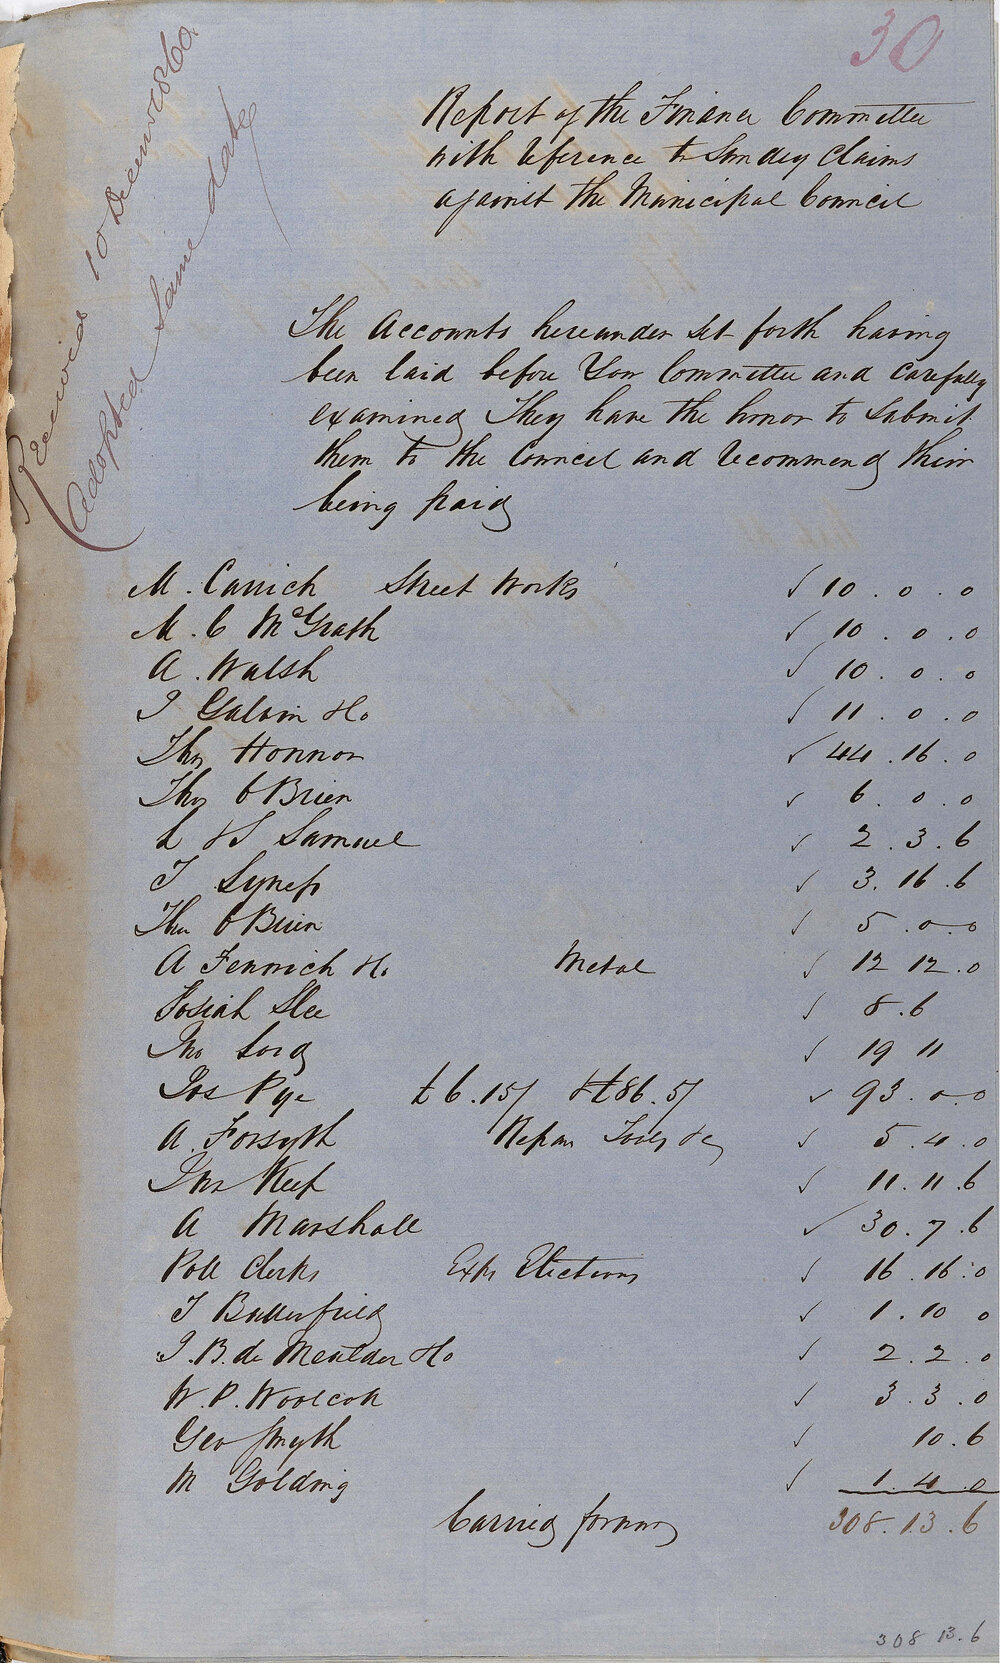 30
Received 10 December 1860
Adopted same date
Report of the Finance Committee
with reference to Sundry Claims
against the Municipal Council
The Accounts hereunder set forth having
been laid before Your Committee and carefully
examined They have the honor to submit
them to the Council and recommend their
being paid
M. Carrick Street Works √ 10 . 0 . 0
M. C McGrath √ 10 . 0 . 0
A. Walsh √ 10 . 0 . 0
J Galvin &Co √ 11 . 0 . 0
Thos Honnor √ 44 . 16 . 0
Thos OBrien √ 6 . 0 . 0
L & S Samuel √ 2 . 3 . 6
J Syness √ 3 . 16 . 6
Thos OBrien √ 5 . 0 . 0
A Fenwick &Co Metal √ 12 12 . 0
Josiah Slee √ 8 . 6
Jno Lord √ 19 11
Jos Pye £6.15/ & £86.5/ √ 93 . 0 0
A. Forsyth Repair Tools &c √ 5 . 4 . 0
Jno Keef √ 11 . 11 . 6
A Marshall √ 30 . 7 . 6
Poll Clerks Exps Elections √ 16 . 16 : 0
J Butterfield √ 1 . 10 0
J. B. de Meulder &Co √ 2 . 2 . 0
W. P. Woolcott √ 3 3 . 0
Geo Smyth √ 10 . 6
M Golding √ 1 . 4 . 0
Carried forward 308 . 13 . 6
308 13 . 6